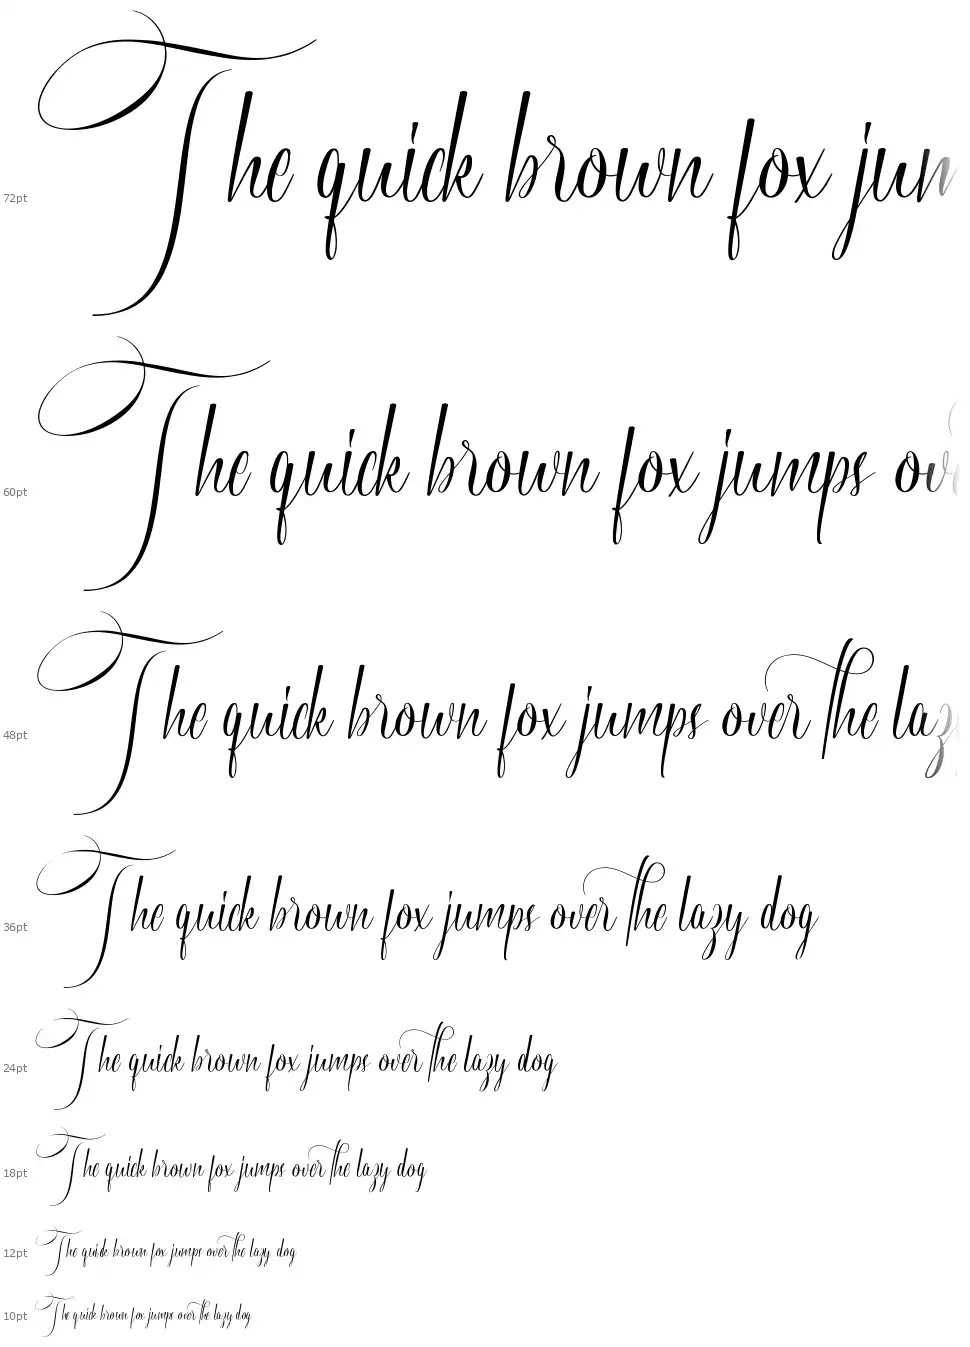 72pt The quick brown fox jum
60pt The quick brown fox jumps ov
48pt The quick brown fox jumps over the laz
36pt The quick brown fox jumps over the lazy dog
24pt The quick brown fox jumps over the lazy dog
18pt The quick brown fox jumps over the lazy dog
12pt The quick brown fox jumps over the lazy dog
10pt The quick brown fox jumps over the lazy dog